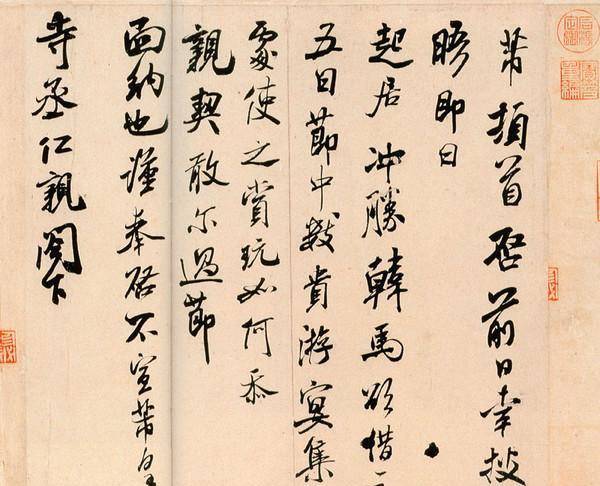 芾頓首啓前日幸披
晤即日
起居冲勝韓馬欲借
五日節中數貴游宴集
處使之賞玩如何忝
親契敢尔過節
面納也謹奉啓不宣芾皇
寺丞仁親閣下